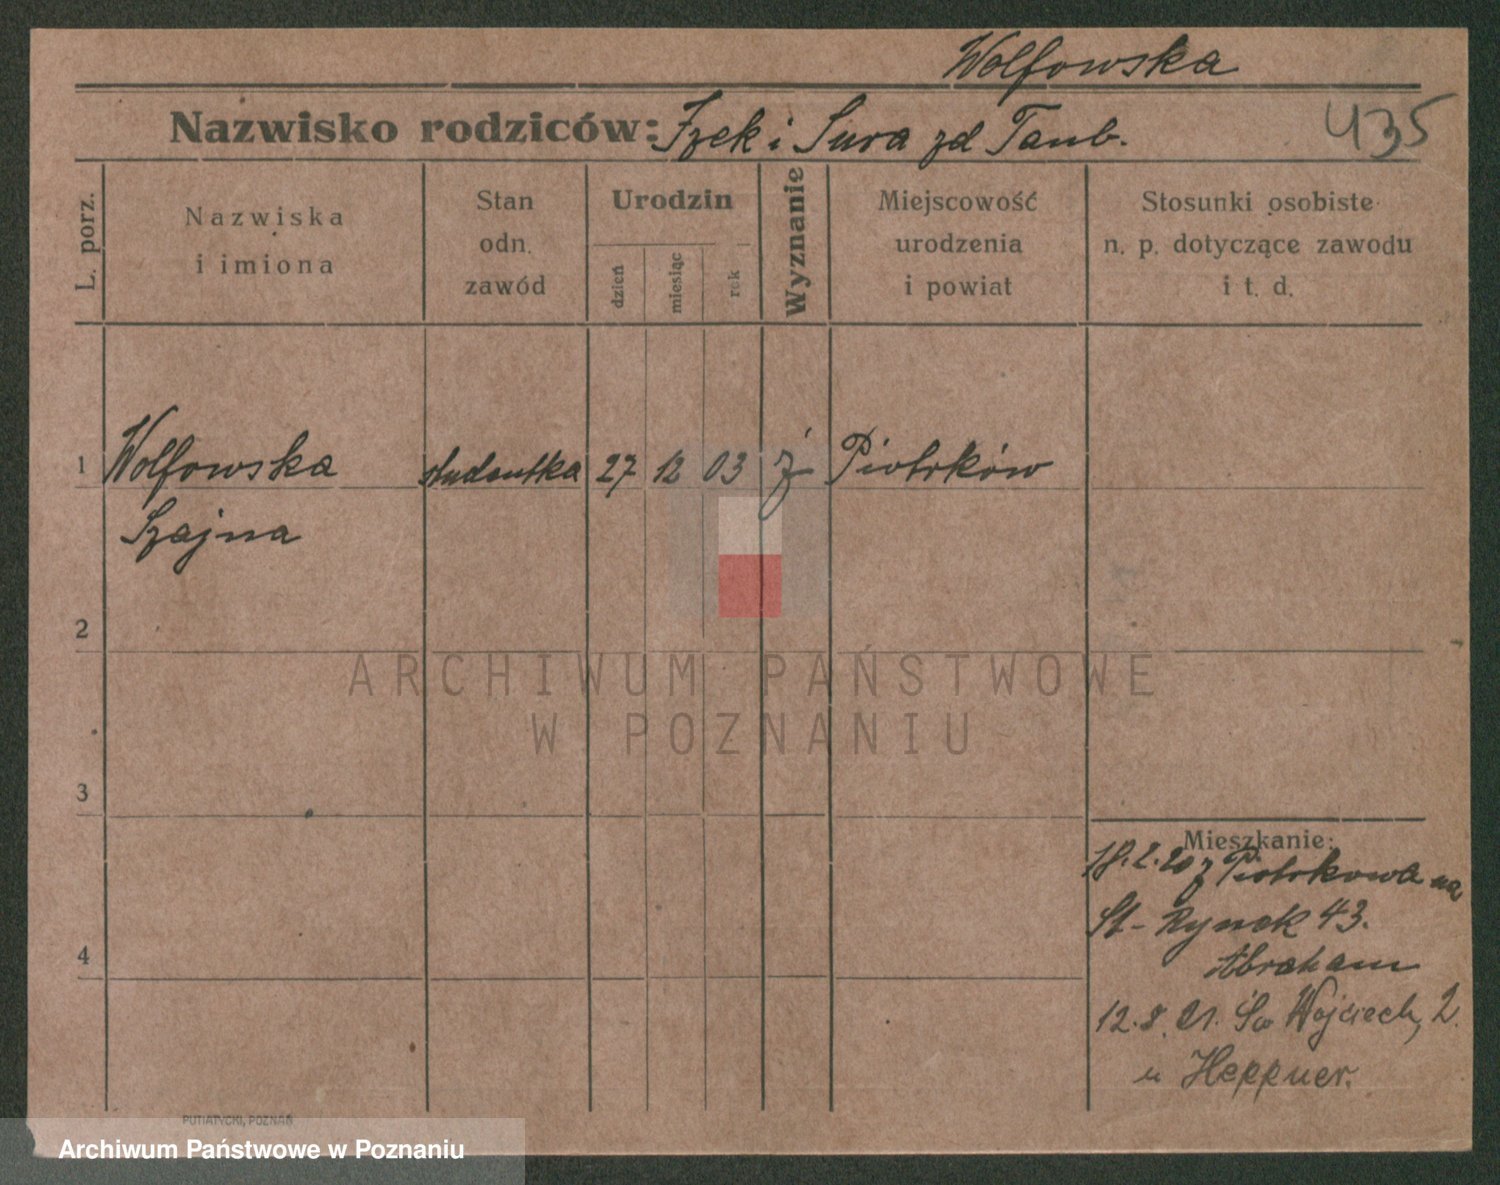 Wolfowska
Nazwisko rodziców: Izek i Sura zd Taub.
435
L. porz.
Nazwiska
i imiona
Stan
odn.
zawód
Urodzin
dzień
miesiąc
rok
Wyznanie
Miejscowość
urodzenia
i powiat
Stosunki osobiste
n. p. dotyczące zawodu
i t. d.
1 Wolfowska studentka 27 12 03 ż Piotrków
Szajna
2
3
4
Mieszkanie:
18.2.20 z Piotrkowa na
St-Rynek 43.
Abraham
12.8.21. Św Wojciech, 2.
u Heppner.
PUTIATYCKI, POZNAŃ
ARCHIWUM PAŃSTWOWE
W POZNANIU
Archiwum Państwowe w Poznaniu